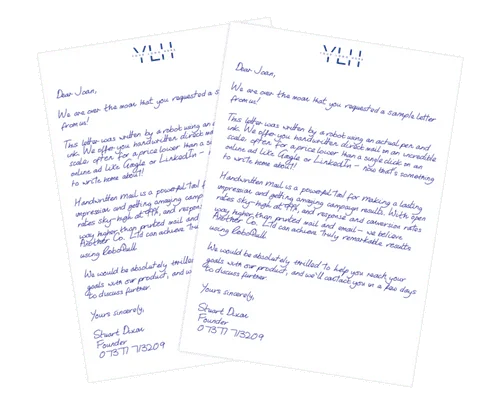 YLH
Dear Joan,
We are over the moon that you requested a s
from us!
This letter was written by a robot using an
ink. We offer you handwritten direct ma
scale: often for a price lower than a s
online ad like Google or LinkedIn -
to write home about!
Handwritten mail is a powerful tool f
impression and getting amazing camp
rates sky-high at 99%, and respon
way higher than printed mail and
Another Co. Ltd can achieve
using RoboQuill.
We would be absolutely thrilled
goals with our product, and w
to discuss further.
Yours sincerely,
Stuart Dixon
Founder
07377 713209
YLH
Dear Joan,
We are over the moon that you requested a sample letter
from us!
This letter was written by a robot using an actual pen and
ink. We offer you handwritten direct mail on an incredible
scale: often for a price lower than a single click on an
online ad like Google or LinkedIn - now that's something
to write home about!
Handwritten mail is a powerful tool for making a lasting
impression and getting amazing campaign results. With open
rates sky-high at 99%, and response and conversion rates
way higher than printed mail and email - we believe
Another Co. Ltd can achieve truly remarkable results
using RoboQuill.
We would be absolutely thrilled to help you reach your
goals with our product, and we'll contact you in a few days
to discuss further.
Yours sincerely,
Stuart Dixon
Founder
07377 713209